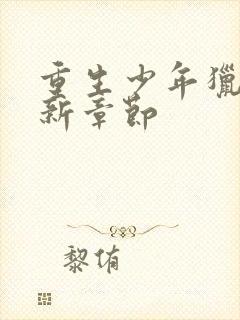 重生少年獵
新章節
黎侑